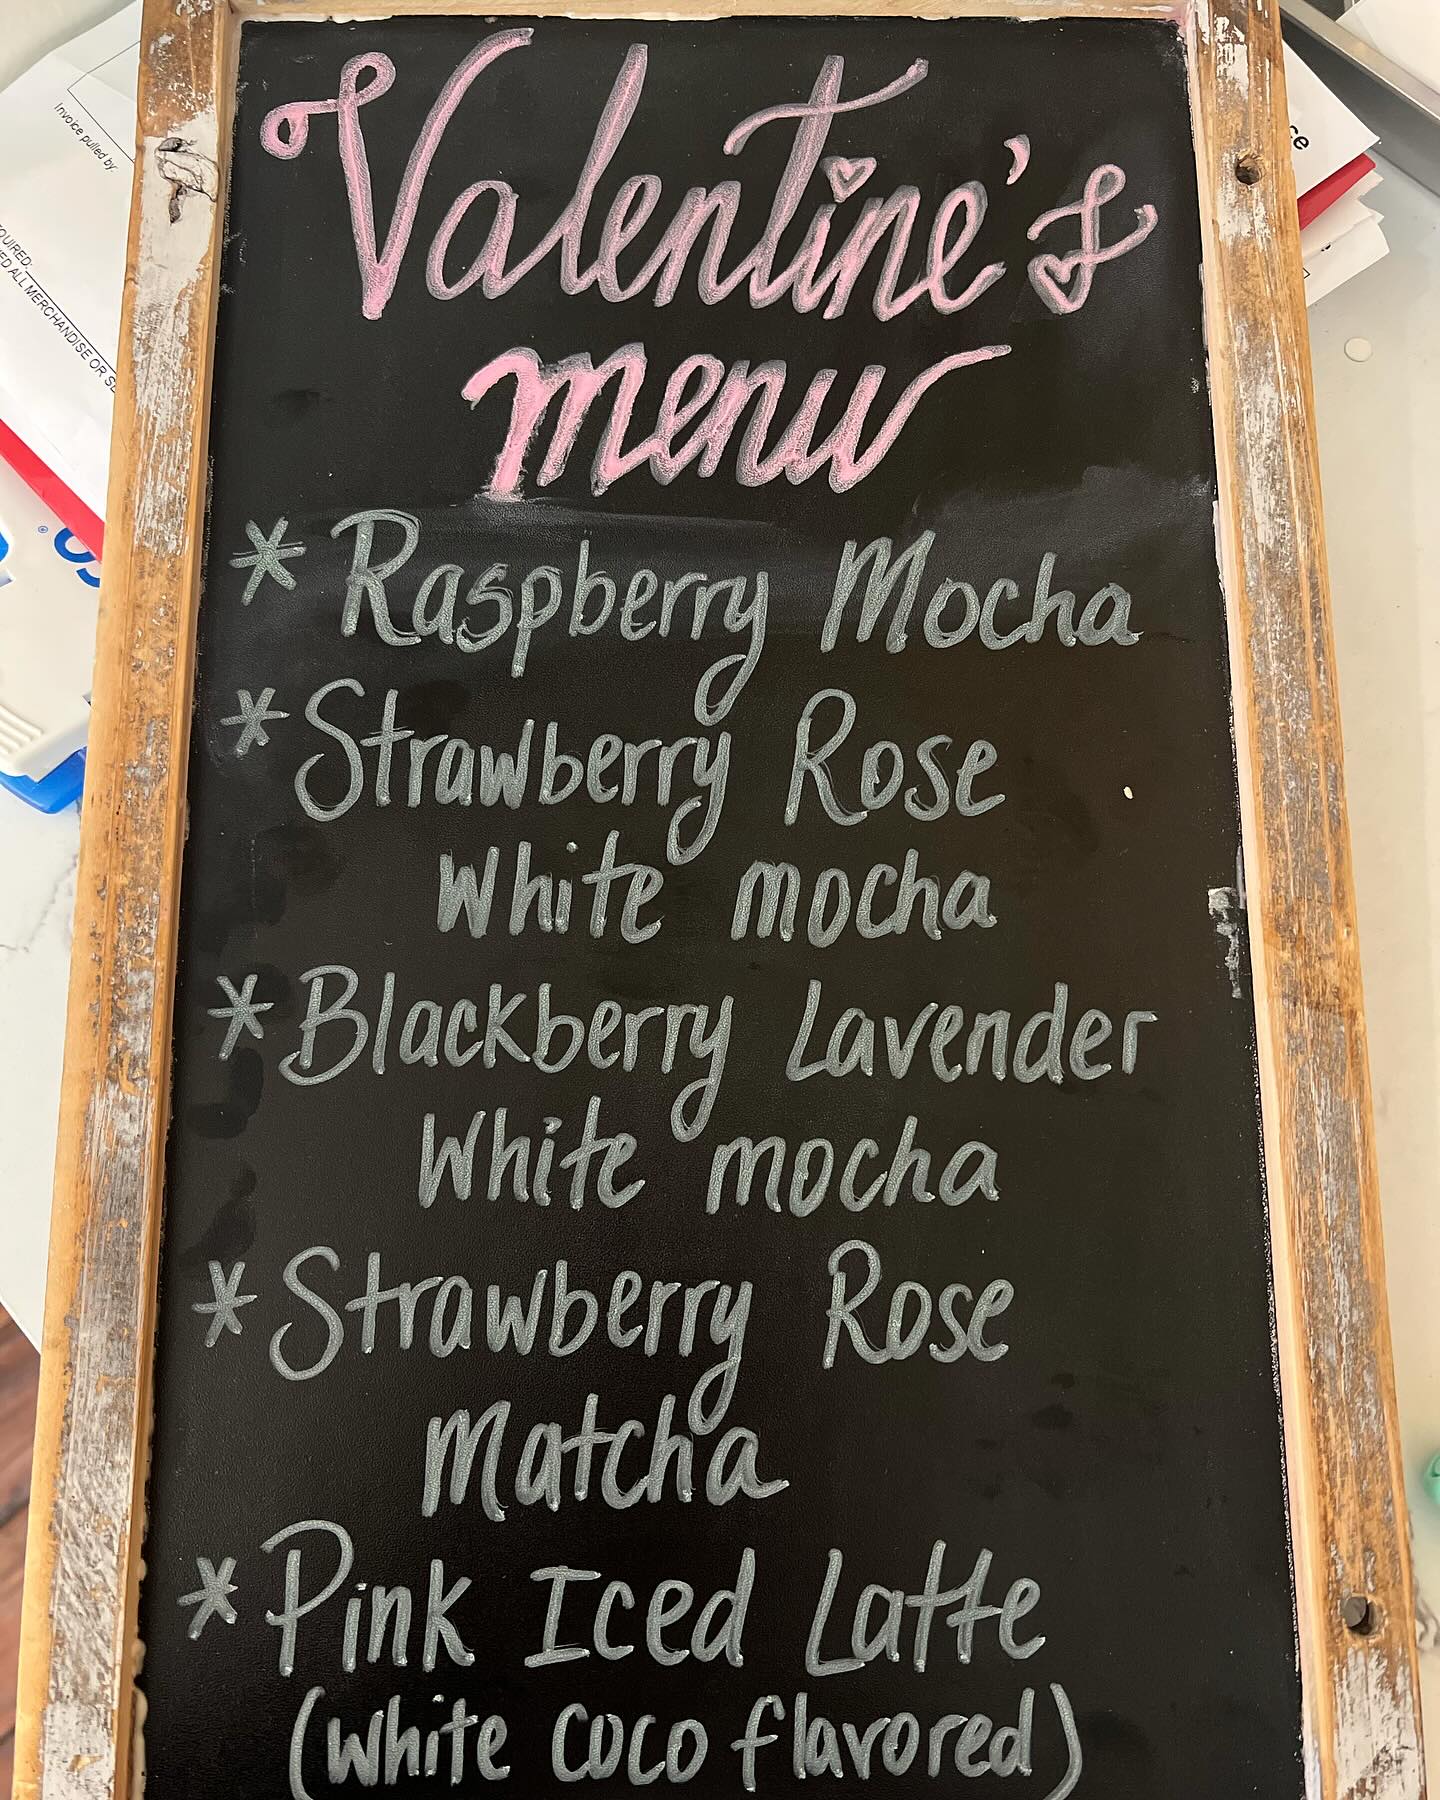 Valentine's
menu
* Raspberry Mocha
* Strawberry Rose
White mocha
* Blackberry Lavender
White mocha
* Strawberry Rose
Matcha
* Pink Iced Latte
(white coco flavored)
Invoice pulled by: